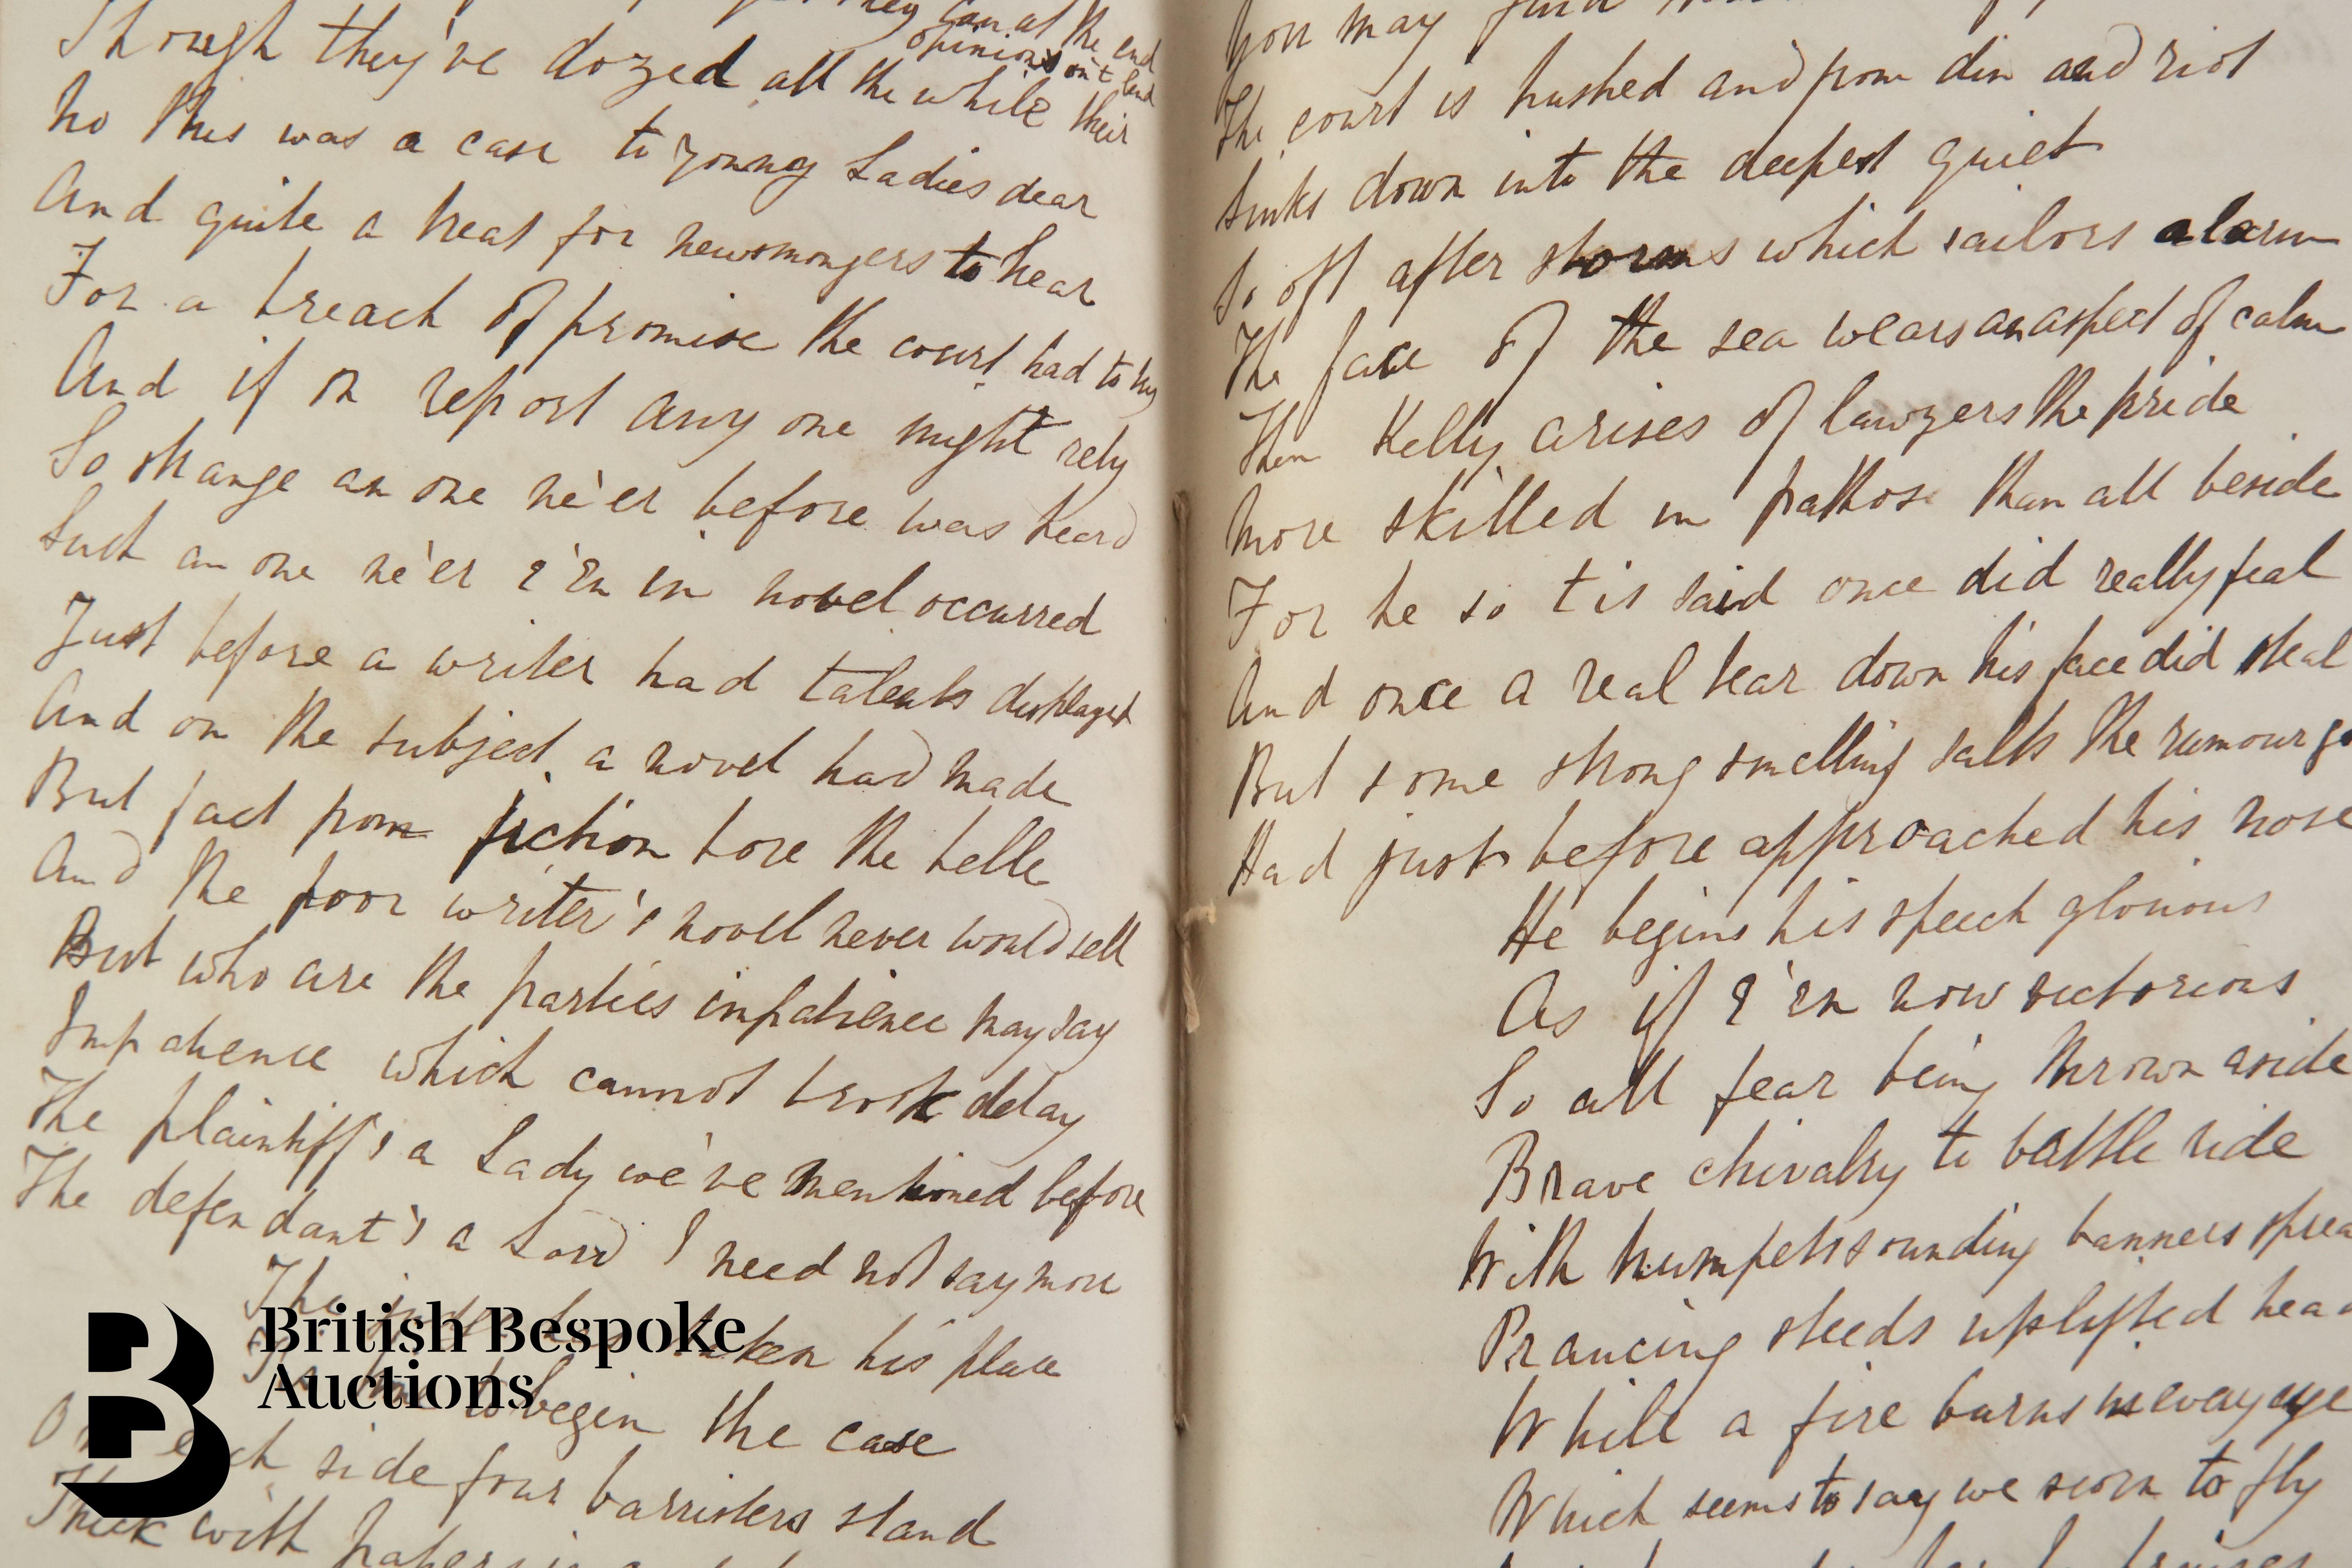 they can at the end
opinions on't lend
Though they've dozed all the while their
No this was a case to young Ladies dear
And quite a treat for newsmongers to hear
For a breach of promise the court had to try
And if on report any one might rely
So strange an one ne'er before was heard
Such an one ne'er e'en in novel occurred
Just before a writer had talents displayed
And on the subject a novel had made
But fact from fiction bore the belle
And the poor writer's novel never would sell
But who are the parties impatience may say
Impatience which cannot brook delay
The plaintiff's a Lady we've mentioned before
The defendant's a Lord I need not say more
The taken his place
to begin the case
On each side four barristers stand
Thick with papers in
You may find
The court is hushed and from din and riot
Sinks down into the deepest quiet
So oft after storms which sailors alarm
The face of the sea wears an aspect of calm
Then Kelly arises of lawyers the pride
More skilled in pathos than all beside
For he so tis said once did really feal
And once a real tear down his face did steal
But some strong smelling salts the rumour go
Had just before approached his nose
He begins his speech glorious
As if e'en now victorious
So all fear being thrown aside
Brave chivalry to battle ride
With trumpets sounding banners sprea
Prancing steeds uplifted hea
While a fire burns in every eye
Which seems to say we scorn to fly
British Bespoke
Auctions